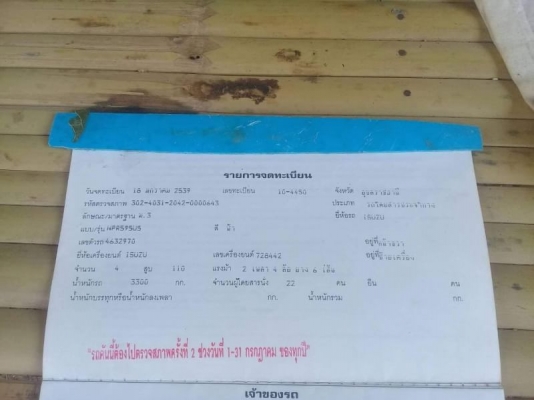 รายการจดทะเบียน
วันจดทะเบียน 16 มกราคม 2539 เลขทะเบียน 10-4450 จังหวัด อุดรธานี
รหัสตรวจสภาพ 302-4031-2042-0000643 ประเภท
ลักษณะ/มาตรฐาน ม.3 ยี่ห้อรถ ISUZU
แบบ/รุ่น NPR595US สี ฟ้า
เลขตัวรถ 4632970 อยู่ที่
ยี่ห้อเครื่องยนต์ ISUZU เลขเครื่องยนต์ 728442 อยู่ที่
จำนวน 4 สูบ 110 แรงม้า 2 เพลา 4 ล้อ ยาง 6 เส้น
น้ำหนักรถ 3300 กก. จำนวนผู้โดยสารนั่ง 22 คน ยืน คน
น้ำหนักบรรทุกหรือน้ำหนักลงเพลา กก. น้ำหนักรวม กก.
"รถคันนี้ต้องไปตรวจสภาพครั้งที่ 2 ช่วงวันที่ 1-31 กรกฎาคม ของทุกปี"
เจ้าของรถ